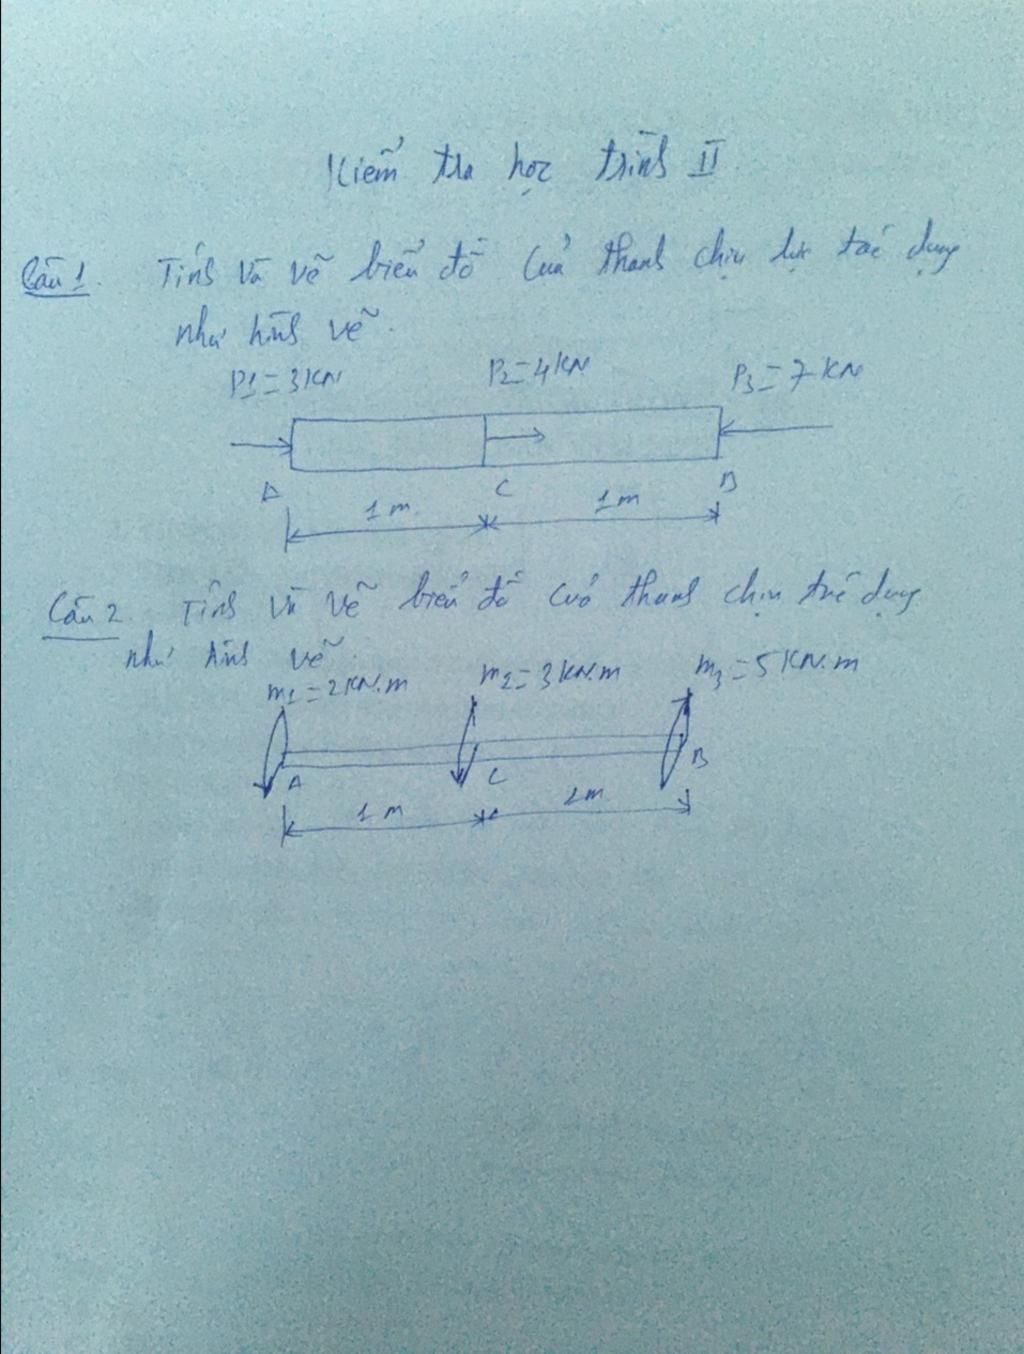 Kiểm tra học trình II
Câu 1. Tính và vẽ biểu đồ của thanh chịu lực tác dụng
như hình vẽ.
P1=3KN P2=4KN P3=7KN
A C B
1m 1m
Câu 2. Tính và vẽ biểu đồ của thanh chịu tác dụng
như hình vẽ.
m1=2KN.m m2=3KN.m m3=5KN.m
A C B
1m 1m